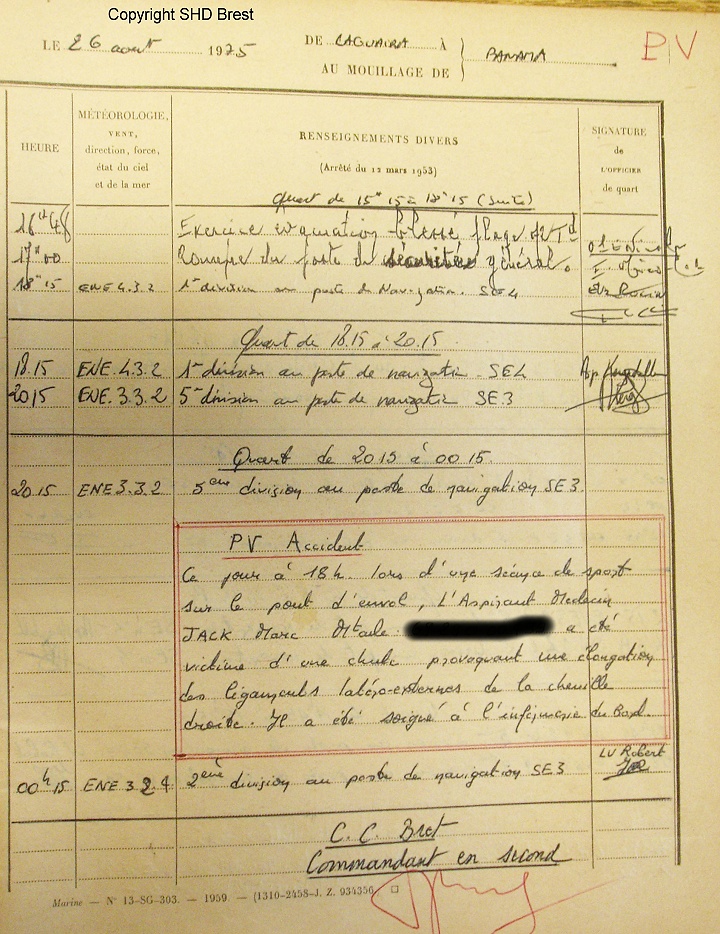 Copyright SHD Brest
LE 26 aout 1975 DE LAGUAIRA À PANAMA
AU MOUILLAGE DE
PV
HEURE
MÉTÉOROLOGIE, VENT, direction, force, état du ciel et de la mer
RENSEIGNEMENTS DIVERS
(Arrêté du 12 mars 1953)
SIGNATURE de L'OFFICIER de quart
Quart de 15H 15 à 18H 15 (suite)
16H 48 Exercice evacuation blessé plage
17H 00 Rompre du poste de sécurité général.
18H 15 ENE 4.3.2 1e division au poste de Navigation. SE4
Quart de 18.15 à 20.15
18.15 ENE.4.3.2 1e division au poste de navigation. SE4 Asp
2015 ENE.3.3.2 5e division au poste de navigation SE3
Quart de 2015 à 00 15.
20.15 ENE 3.3.2 5ème division au poste de navigation SE3.
PV Accident
Ce jour à 18h. lors d'une séance de sport
sur le pont d'envol, L'Aspirant Medecin
JACK Marc Mtcle. a été
victime d'une chute provoquant une élongation
des ligaments latéro-externes de la cheville
droite. Il a été soigné à l'infirmerie du Bord.
LV Robert
00h15 ENE 3.2.4 2ème division au poste de navigation SE3
C.C. Bret
Commandant en second
Marine — N° 13-SG-303. — 1959. — (1310-2458-J. Z. 934356